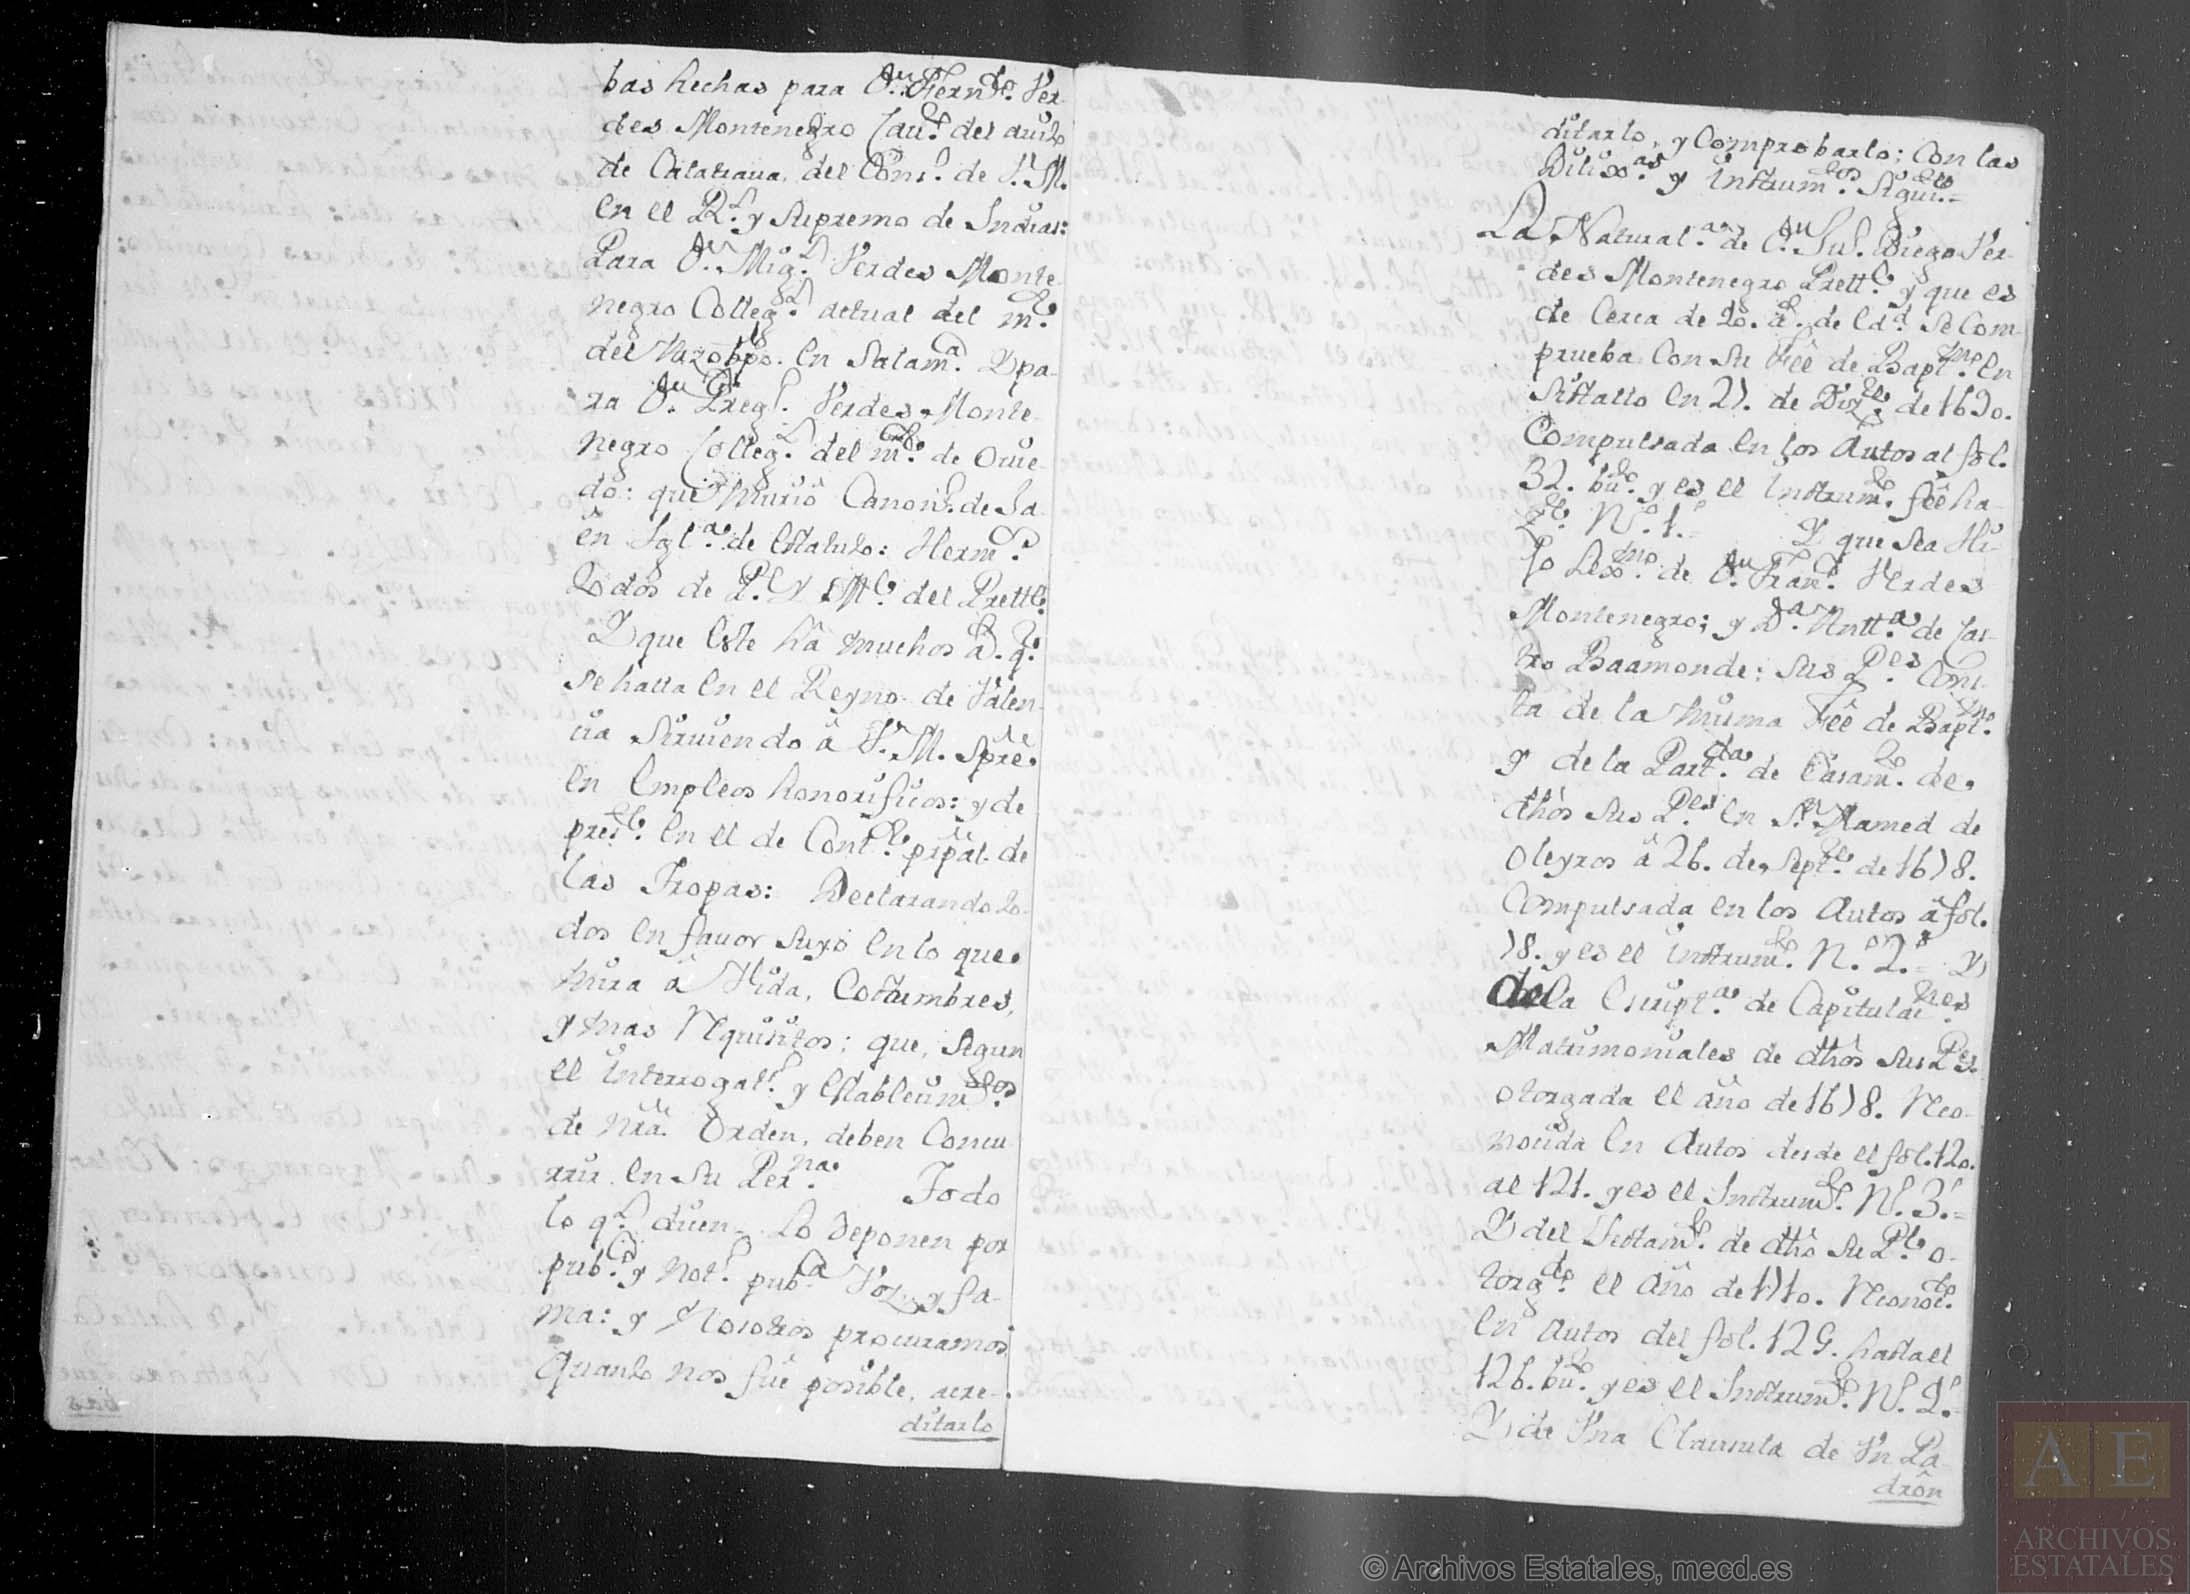 bas hechas para Dn. Ferndo. Ver-
des Montenegro Cauo. del auito
de Calatraua, del Conso. de S. M.
en el Rl. y Supremo de Indias:
Para Dn. Migl. Verdes Monte-
negro Collegl. actual del mr.
del Arzobpo. en Salamca. Y pa-
ra Dn. Gregro. Verdes Monte-
negro Collegl. del mr. de Ouie-
do: que murió Canono. de Ja-
én Igla. de estatuto: Hermos.
todos de Pe. y Me. del Prette.
Y que este há muchos as. qe.
se halla en el Reyno de Valen-
cia siruiendo á S. M. spre.
en empleos honorificos: y de
preste. en el de Conte. prpal. de
las Tropas: Declarando to-
dos en fauor suyo en lo que
mira á Vida, Costumbres,
y mas Requisitos; que, segun
el interrogato. y establecimtos.
de nra. Orden, deben concu-
rrir en su Perna. Todo
lo ql. dicen, lo deponen por
pubco. y noto. pubca. Voz, y fa-
ma: y Nosotros procuramos
quanto nos fué posible, acre-
ditarlo
ditarlo, y Comprobarlo; con las
Dilixas. y instrumtos. siguites.=
La Naturala. de Dn. Jun. Diego Ver-
des Montenegro Prette. y que es
de cerca de 20. as. de edd. se com-
prueba con su feé de Baptmo. en
Sistallo en 21. de Dizre. de 1690.
Compulsada en los Autos al fol.
32. buto. y es el instrumto. feeha-
zte. No. 1.= Y que sea Hi-
jo Lexmo. de Dn. Frano. Verdes
Montenegro; y Da. Antta. de Cas-
tro Baamonde; sus Pes. cons-
ta de la misma feé de Baptmo.
y de la Partda. de Casamto. de
dhos sus Pes. en Sn. Mamed de
Oleyros á 26. de Septre. de 1678.
Compulsada en los Autos á fol.
78. y es el instrumto. No. 2.= Y
de la Escripta. de Capitulacnes.
Matrimoniales de dhos sus Pes.
otorgada el año de 1678. Reco-
nocida en Autos desde el fol. 120.
al 121. y es el Instrumto. No. 3.=
Y del Testamto. de dho su Pe. o-
torgdo. el año de 1710. Reconocdo.
en Autos del fol. 125. hasta el
126. buto. y es el Instrumto. No. 4.=
Y de Vna Clausula de Vn Pa-
drón
bas
© Archivos Estatales, mecd.es
AE
ARCHIVOS
ESTATALES